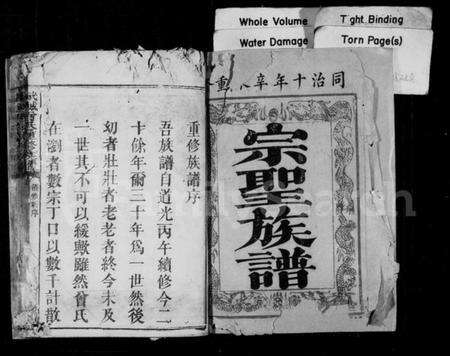 Whole Volume
Tight Binding
Water Damage
Torn Page(s)
同治十年辛
重
宗聖族譜
重修族譜序
吾族譜自道光丙午續修今二
十餘年爾二十年為一世然後
幼者壯壯者老老者終今未及
一世其不可以緩歟雖然曾氏
在瀏者數宗丁口以數千計散